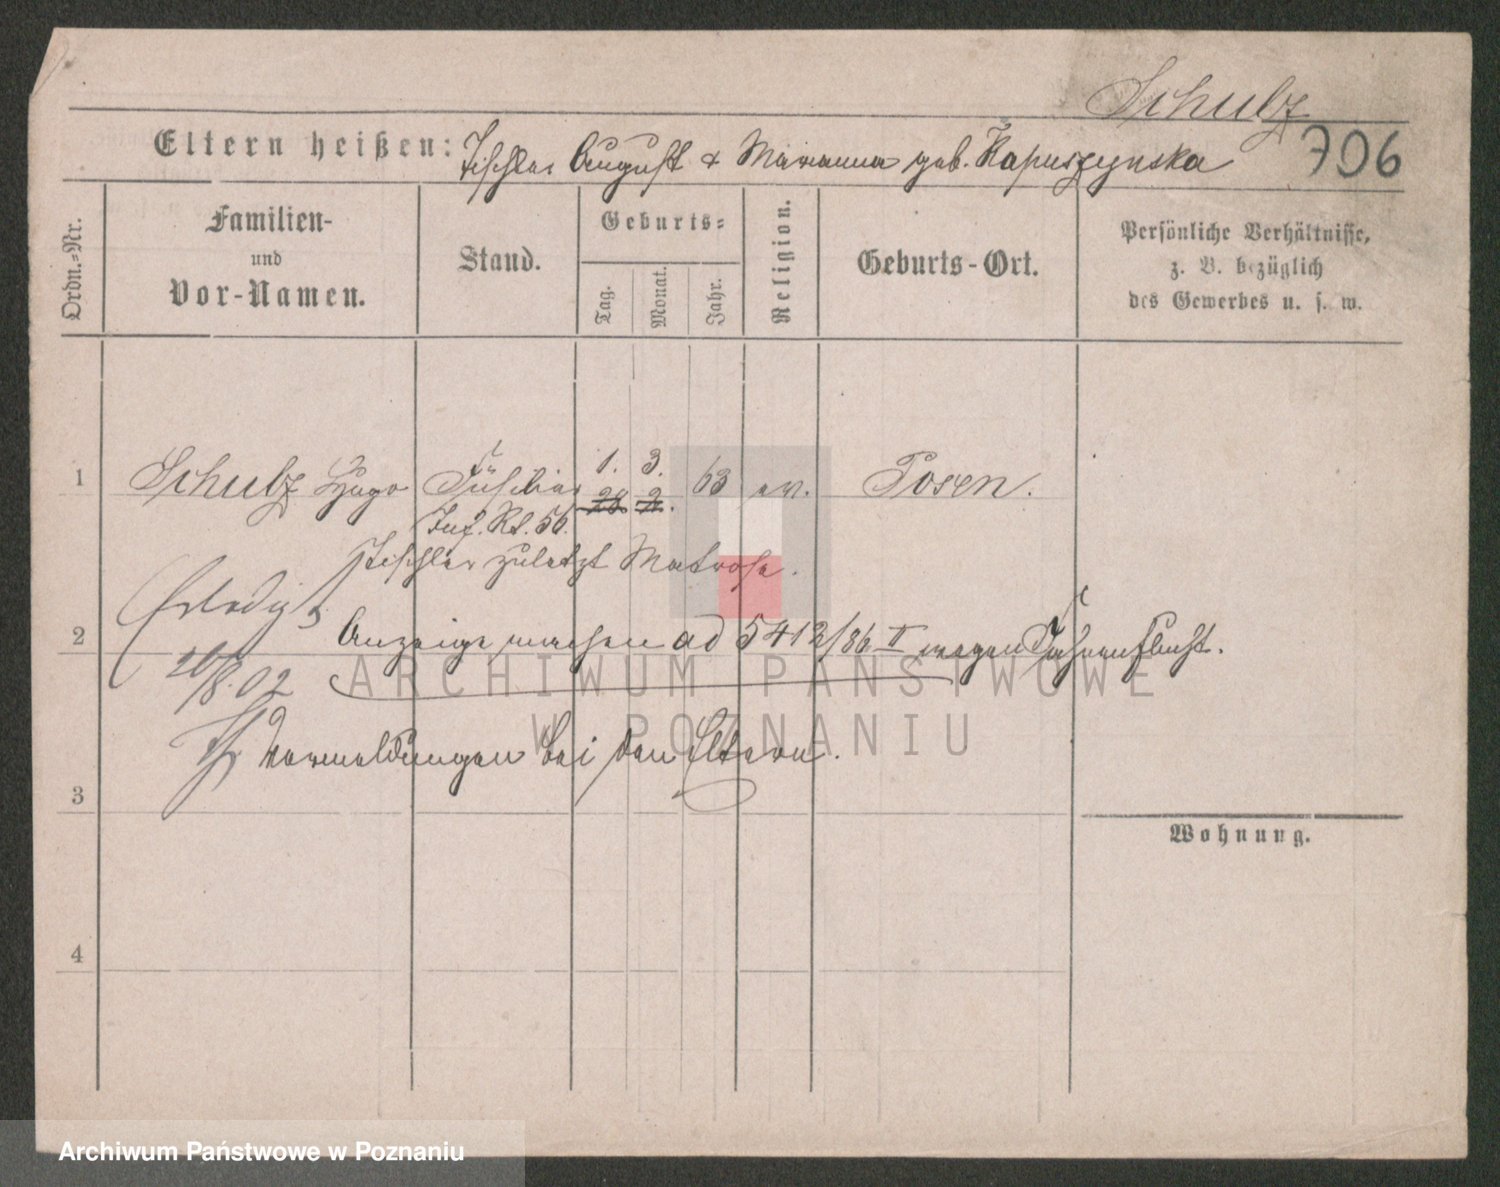 Schulz
Eltern heißen: Tischler August & Marianna geb. Kapuszynska 706
Ordn.-Nr.
Familien-
und
Vor-Namen.
Stand.
Geburts-
Tag.
Monat.
Jahr.
Religion.
Geburts-Ort.
Persönliche Verhältnisse,
z. B. bezüglich
des Gewerbes u. s. w.
1. 3.
1 Schulz Hugo Füsilier 28 2. 63 ev. Posen.
Inf. Rt. 56.
Tischler zuletzt Matrose.
Erledigt
2 Anzeige machen ad 5412/86 II wegen Fahnenflucht.
20/8.02
Vermeldungen bei den Eltern.
3
Wohnung.
4
ARCHIWUM PAŃSTWOWE
W POZNANIU
Archiwum Państwowe w Poznaniu